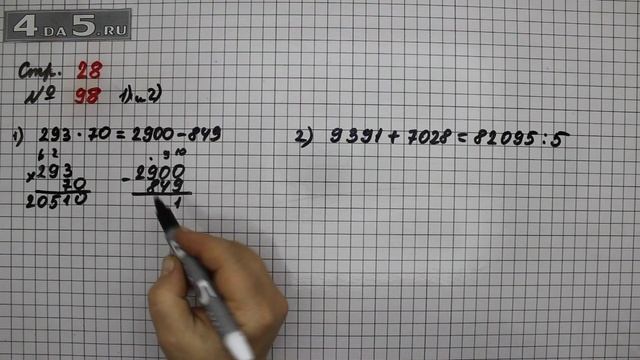 4DA5.RU
Стр. 28
№ 98 1) и 2)
1) 293 · 70 = 2900 - 849
6 2
× 293
70
20510
. 9 10
- 2900
849
1
2) 9391 + 7028 = 82095 : 5